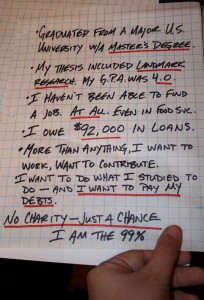 • GRADUATED FROM A MAJOR U.S.
UNIVERSITY W/A MASTER'S DEGREE.
• MY THESIS INCLUDED LANDMARK
RESEARCH. MY G.P.A. WAS 4.0.
• I HAVEN'T BEEN ABLE TO FIND
A JOB. AT ALL. EVEN IN FOOD SVC.
• I OWE $92,000 IN LOANS.
• MORE THAN ANYTHING, I WANT TO
WORK, WANT TO CONTRIBUTE.
• I WANT TO DO WHAT I STUDIED TO
DO – AND I WANT TO PAY MY
DEBTS.
NO CHARITY – JUST A CHANCE
I AM THE 99%